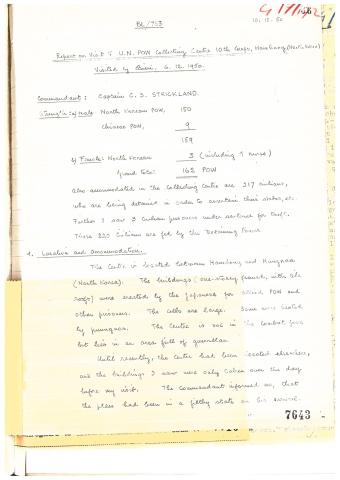 BE/753
10.12.50
Report on Visit to U.N. POW Collecting Centre 10th Corps, Hamhung (North Korea)
Visited by Bieri, 6.12.1950.
Commandant: Captain C. S. STRICKLAND.
Strength: a) Male: North Korean POW, 150
Chinese POW, 9
159
b) Female: North Korean 3 (including 1 nurse)
Grand total: 162 POW
Also accommodated in the Collecting Centre are 217 civilians,
who are being detained in order to ascertain their status, etc.
Further I saw 3 civilian prisoners under sentence for theft.
These 220 civilians are fed by the Detaining Power.
1. Location and Accommodation.
The Centre is located between Hamhung and Hungnam
(North Korea). The buildings (one-storey, with tile
roofs) were erected by the Japanese for allied POW and
other prisoners. The cells are large. Some were heated
by. The Centre is not in the combat zone
but lies in an area full of guerillas.
Until recently, the Centre had been located elsewhere,
and the buildings I saw were only taken over the day
before my visit. The Commandant informed me, that
the place had been in a filthy state on his arrival.
7643